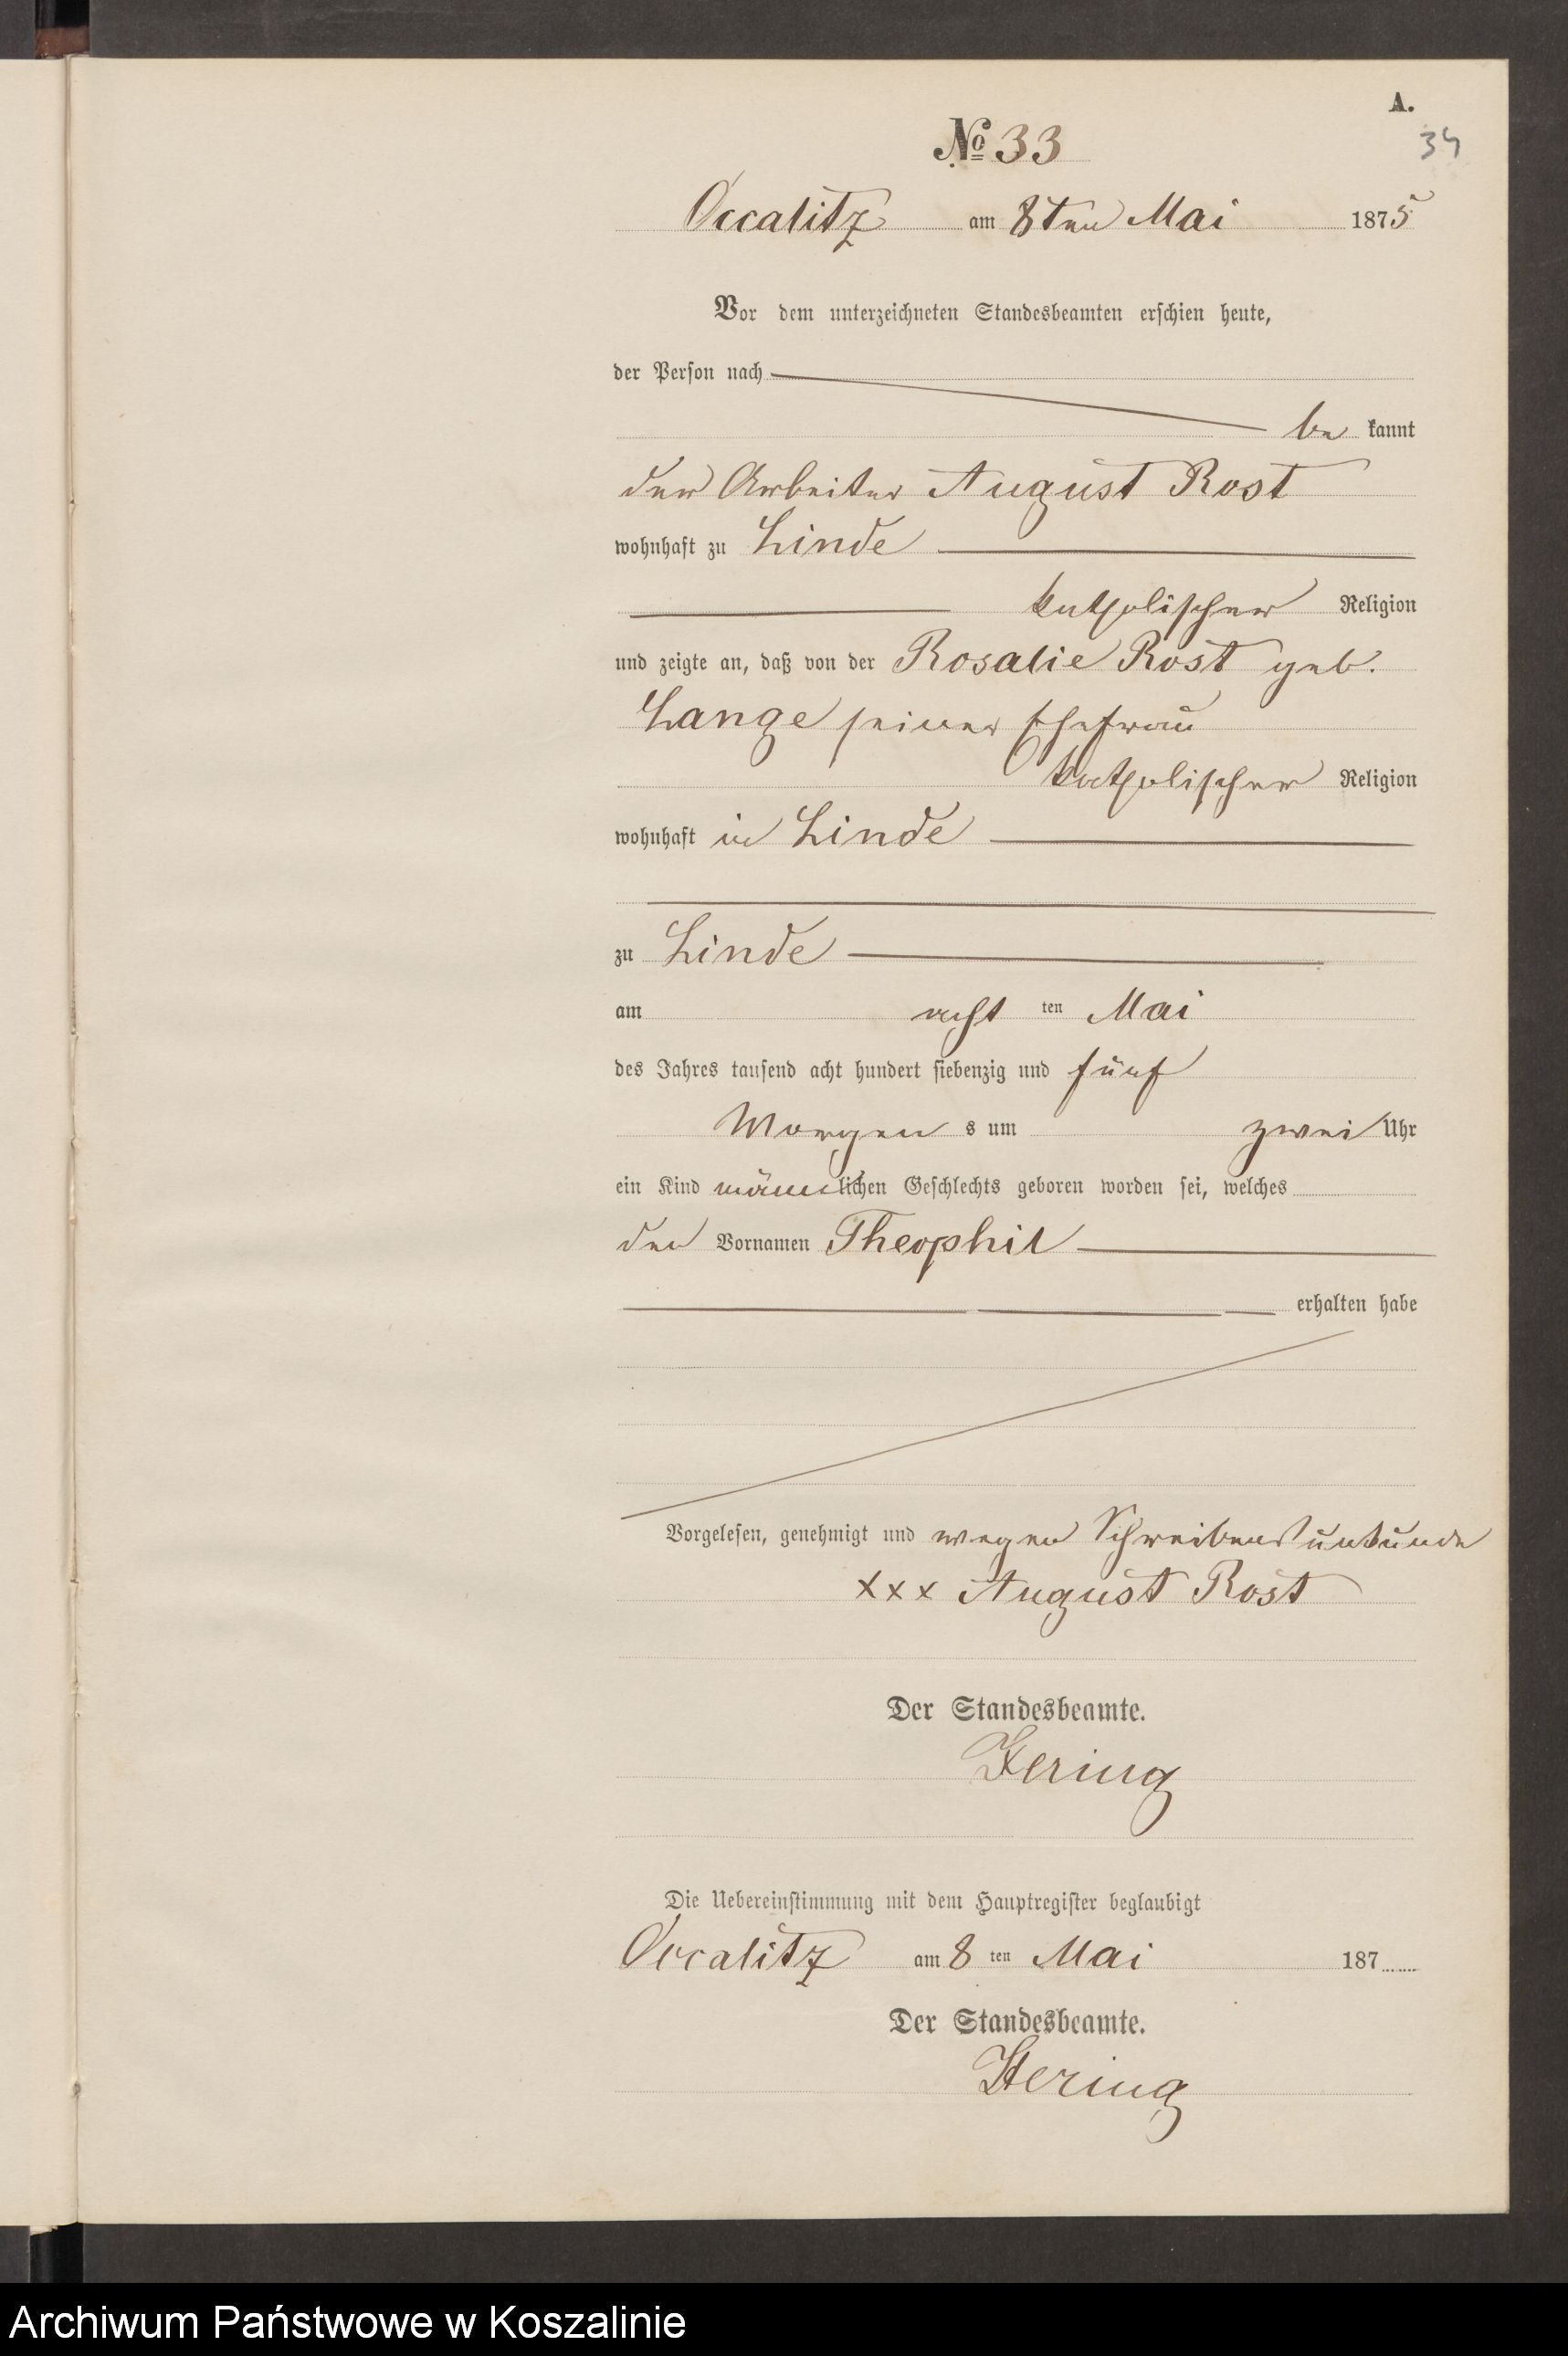 A.
34
№ 33
Occalitz am 8ten Mai 1875
Vor dem unterzeichneten Standesbeamten erschien heute,
der Person nach
be kannt
der Arbeiter August Rost
wohnhaft zu Linde
katholischer Religion
und zeigte an, daß von der Rosalie Rost geb.
Lange seiner Ehefrau
katholischer Religion
wohnhaft in Linde
zu Linde
am acht ten Mai
des Jahres tausend acht hundert siebenzig und fünf
Morgen s um zwei Uhr
ein Kind männlichen Geschlechts geboren worden sei, welches
den Vornamen Theophil
erhalten habe
Vorgelesen, genehmigt und wegen Schreibensunkunde
xxx August Rost
Der Standesbeamte.
Hering
Die Uebereinstimmung mit dem Hauptregister beglaubigt
Occalitz am 8 ten Mai 187
Der Standesbeamte.
Hering
Archiwum Państwowe w Koszalinie